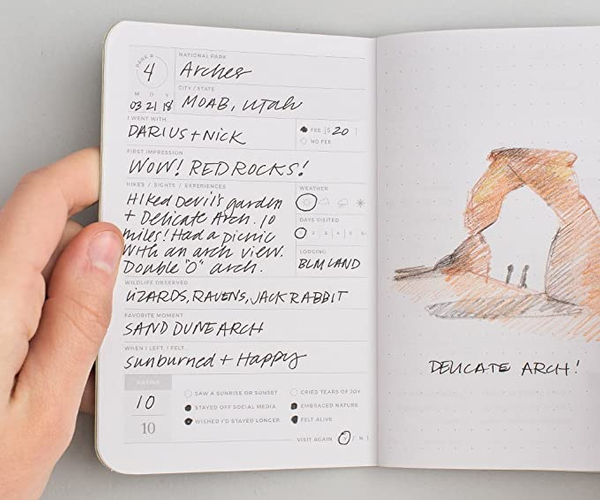 PARK #
4
NATIONAL PARK
Arches
CITY / STATE
MOAB, Utah
M D Y
03 21 18
I WENT WITH
DARIUS + NICK
FEE [$ 20 ]
NO FEE
FIRST IMPRESSION
WOW! RED ROCKS!
HIKES / SIGHTS / EXPERIENCES
Hiked Devil's garden
+ Delicate Arch. 10
miles! Had a picnic
with an arch view.
Double "O" arch.
WEATHER
DAYS VISITED
1 2 3 4 5 6+
LODGING
BLM LAND
WILDLIFE OBSERVED
LIZARDS, RAVENS, JACK RABBIT
FAVORITE MOMENT
SAND DUNE ARCH
WHEN I LEFT, I FELT
sunburned + Happy
RATING
10
10
SAW A SUNRISE OR SUNSET
STAYED OFF SOCIAL MEDIA
WISHED I'D STAYED LONGER
CRIED TEARS OF JOY
EMBRACED NATURE
FELT ALIVE
VISIT AGAIN Y / N
DELICATE ARCH!